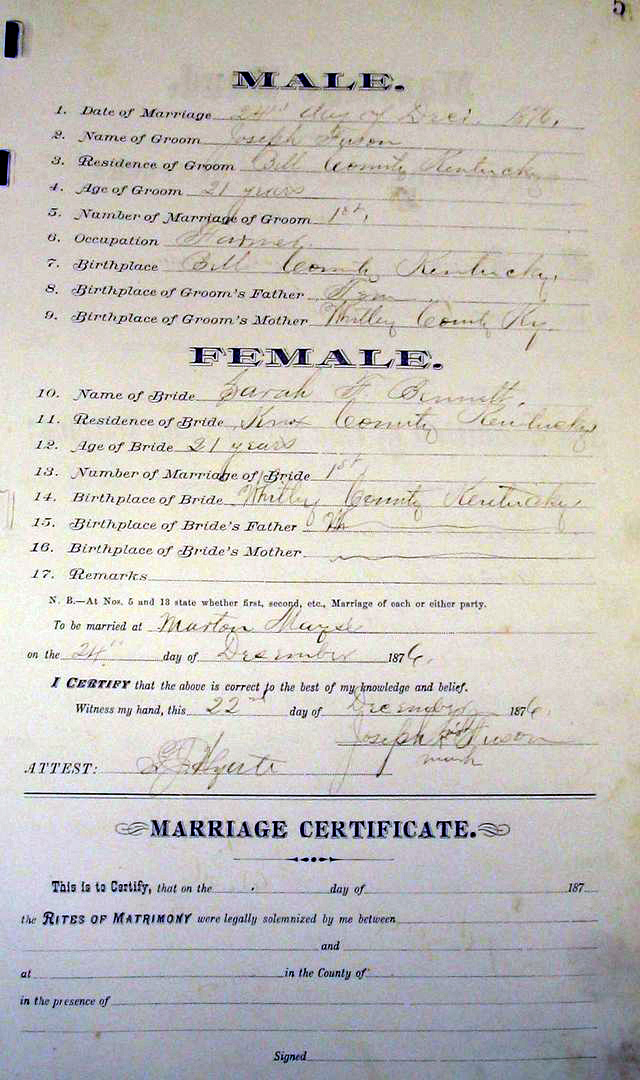 5
MALE.
1. Date of Marriage 24th day of Decr. 1876.
2. Name of Groom Joseph Fuson
3. Residence of Groom Bell County Kentucky
4. Age of Groom 21 years
5. Number of Marriage of Groom 1st.
6. Occupation Farmer.
7. Birthplace Bell County Kentucky.
8. Birthplace of Groom's Father
9. Birthplace of Groom's Mother Whitley County Ky.
FEMALE.
10. Name of Bride Sarah F. Bennett.
11. Residence of Bride Knox County Kentucky
12. Age of Bride 21 years
13. Number of Marriage of Bride 1st
14. Birthplace of Bride Whitley County Kentucky
15. Birthplace of Bride's Father
16. Birthplace of Bride's Mother
17. Remarks
N. B.—At Nos. 5 and 13 state whether first, second, etc., Marriage of each or either party.
To be married at Marton
on the 24th day of December 1876.
I CERTIFY that the above is correct to the best of my knowledge and belief.
Witness my hand, this 22nd day of December 1876.
Joseph his x Fuson
mark
ATTEST:
MARRIAGE CERTIFICATE.
This is to Certify, that on the day of 187
the RITES OF MATRIMONY were legally solemnized by me between
and
at in the County of
in the presence of
Signed